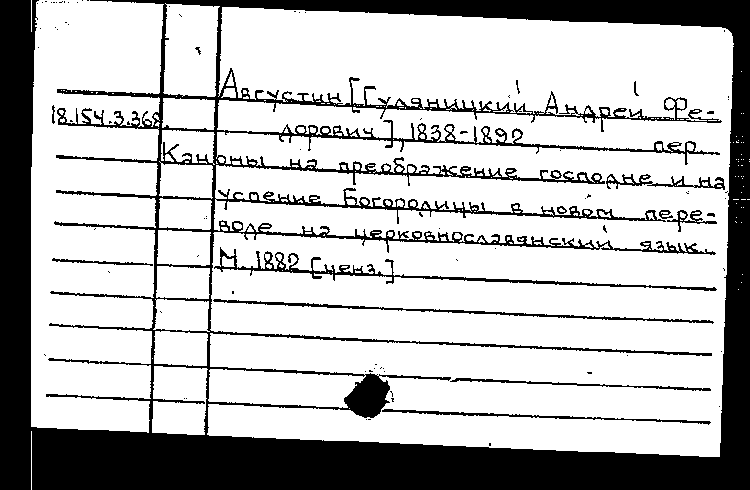 Августин [Гуляницкий, Андрей Фе-
18.154.3.368.
дорович], 1838-1892, пер.
Каноны на преображение господне и на
успение Богородицы в новом пере-
воде на церковнославянский язык.
М., 1882 [ценз.]